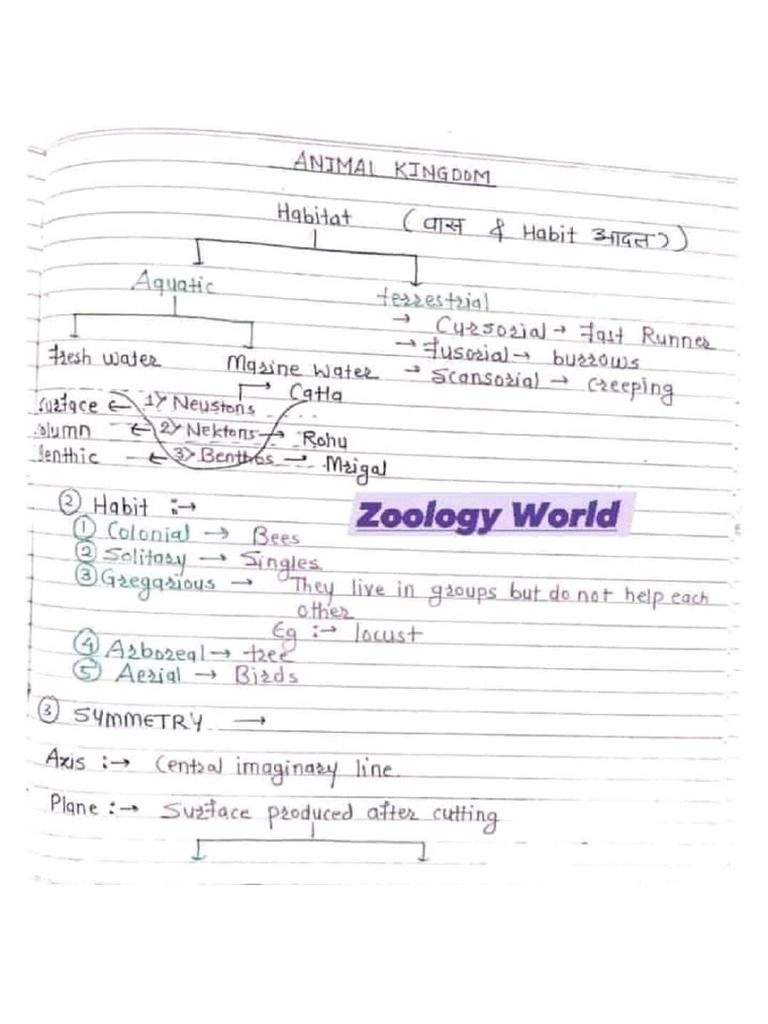 ANIMAL KINGDOM
Habitat ( वास & Habit आदत))
Aquatic
terrestrial
→ Cursorial → Fast Runner
→ Fusorial → burrows
→ Scansorial → Creeping
Fresh water
Marine Water
→ Catla
surface ← 1) Neustons
olumn ← 2) Nektons → Rohu
Benthic ← 3) Benthos → Mrigal
② Habit :→
Zoology World
① Colonial → Bees
② Solitary → Singles
③ Gregarious → They live in groups but do not help each
other
Eg :→ locust
④ Arboreal → tree
⑤ Aerial → Birds
③ SYMMETRY →
Axis :→ Central imaginary line.
Plane :→ Surface produced after cutting